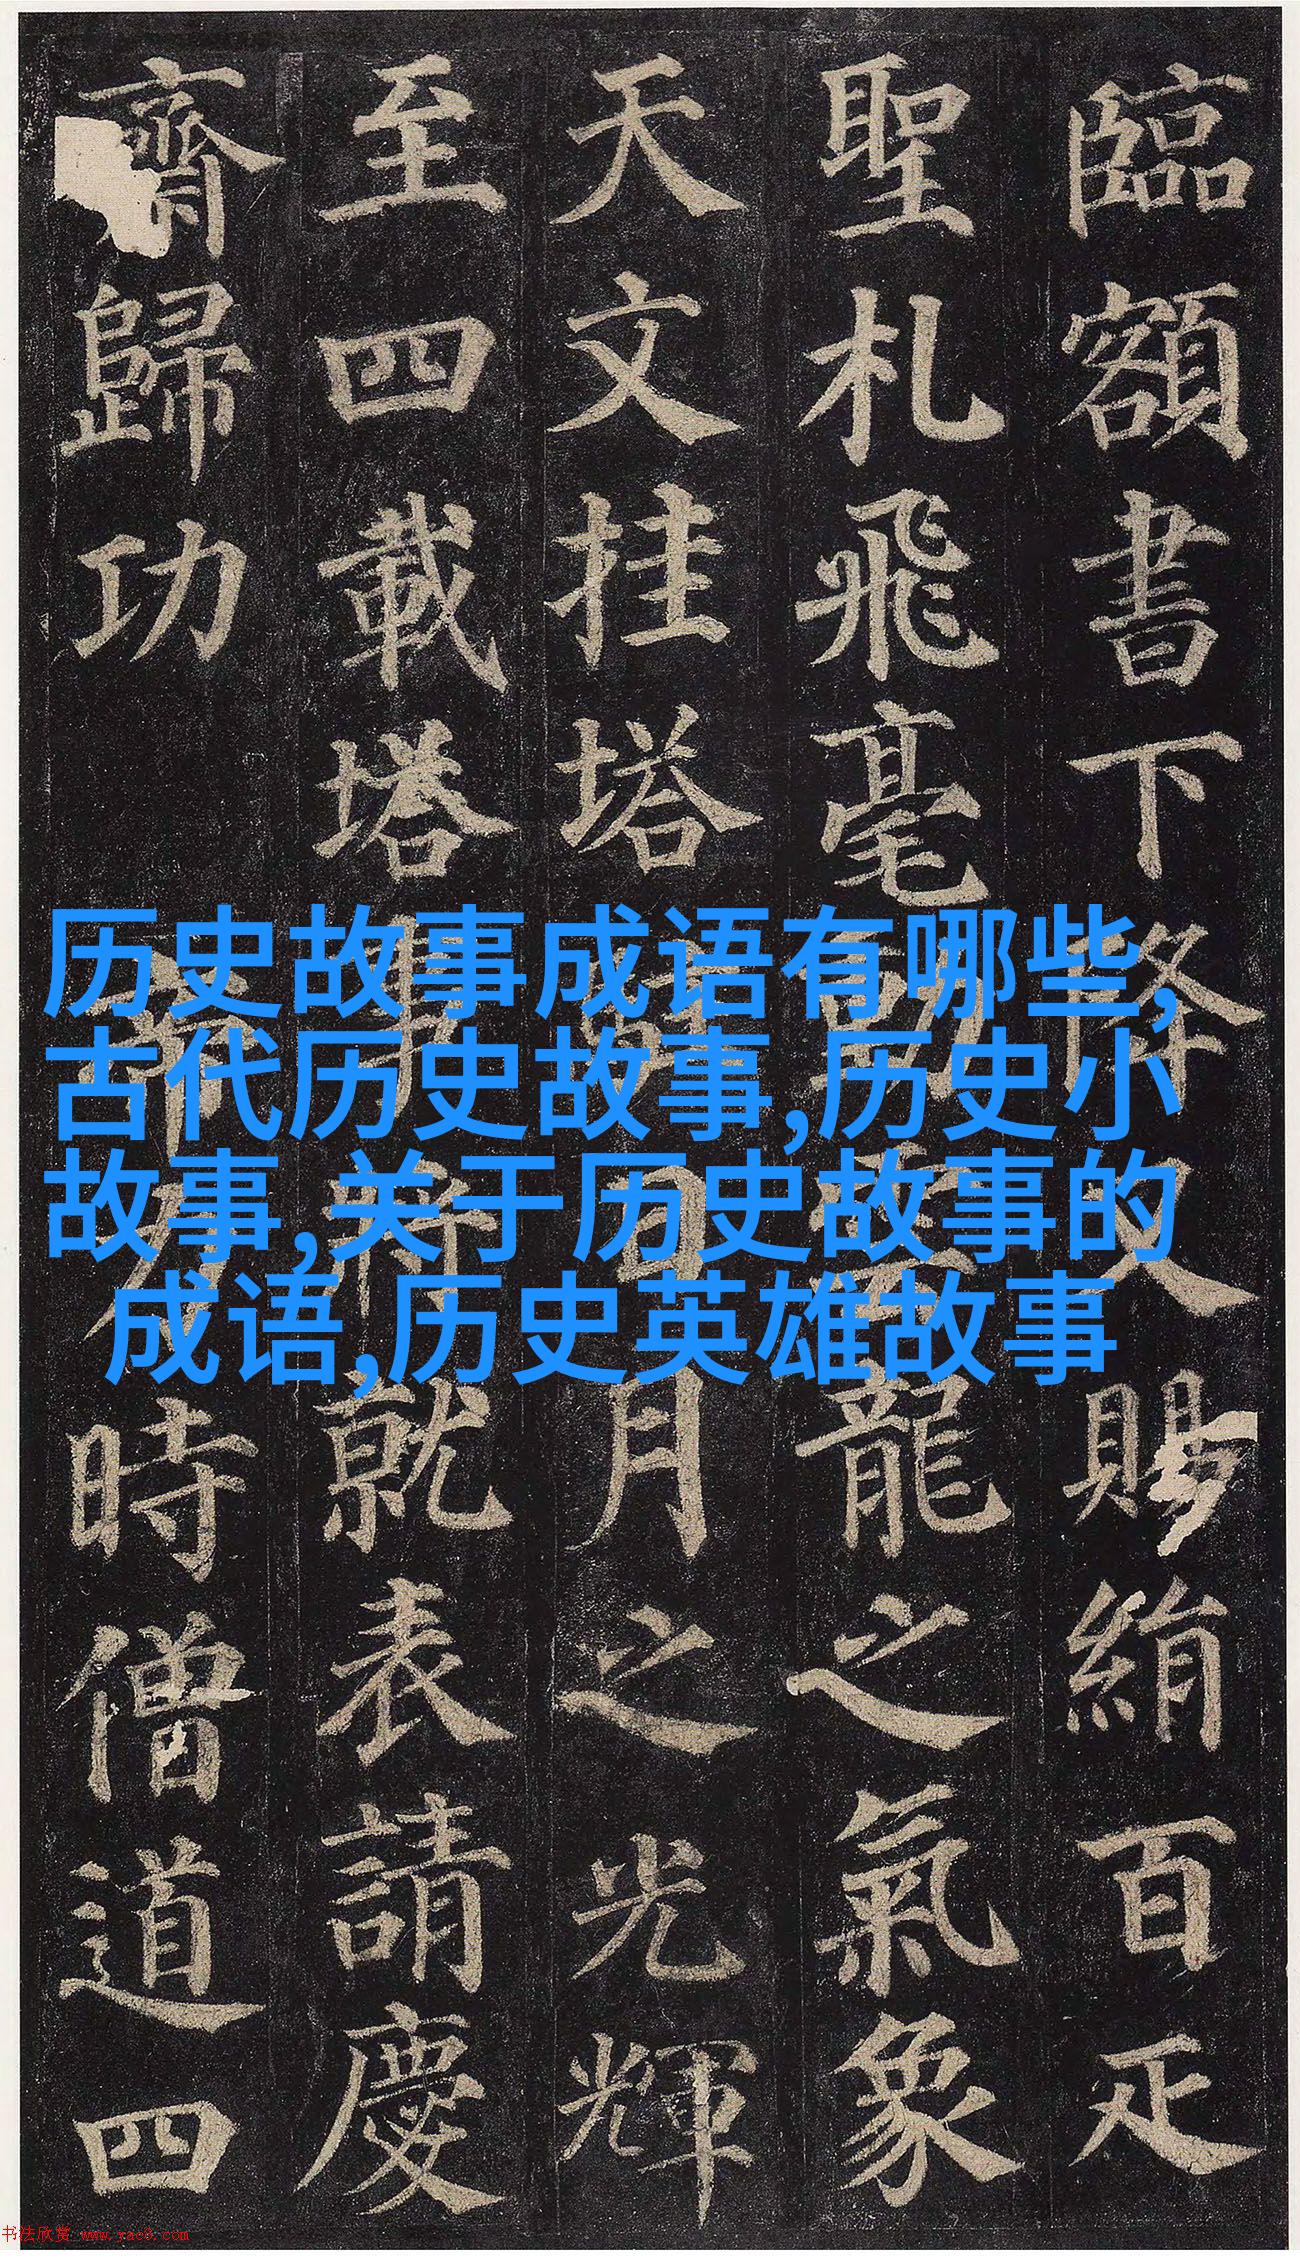 臨額書下降又賜絹百疋
聖札飛毫動雲龍之氣象
天文挂塔日月之光輝
至四載塔事將就表請慶
齋歸功帝力時僧道四
历史故事成语有哪些,
古代历史故事,历史小
故事,关于历史故事的
成语,历史英雄故事
书法欣赏 www.yac8.com